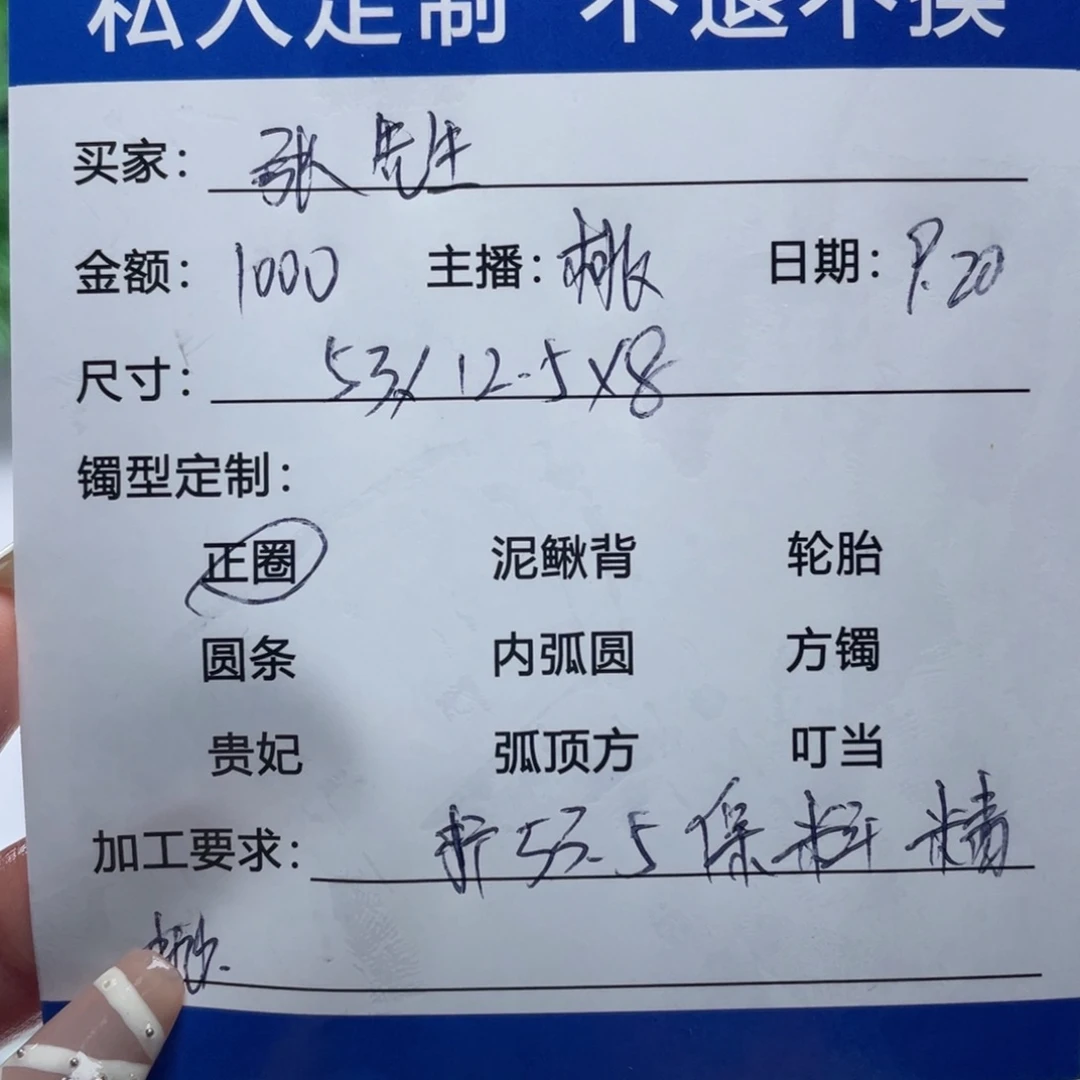 私人定制 不退不换
买家：张先生
金额：1000 主播：桃 日期：9.20
尺寸：53X12.5X8
镯型定制：
正圈 泥鳅背 轮胎
圆条 内弧圆 方镯
贵妃 弧顶方 叮当
加工要求：53.5保料精